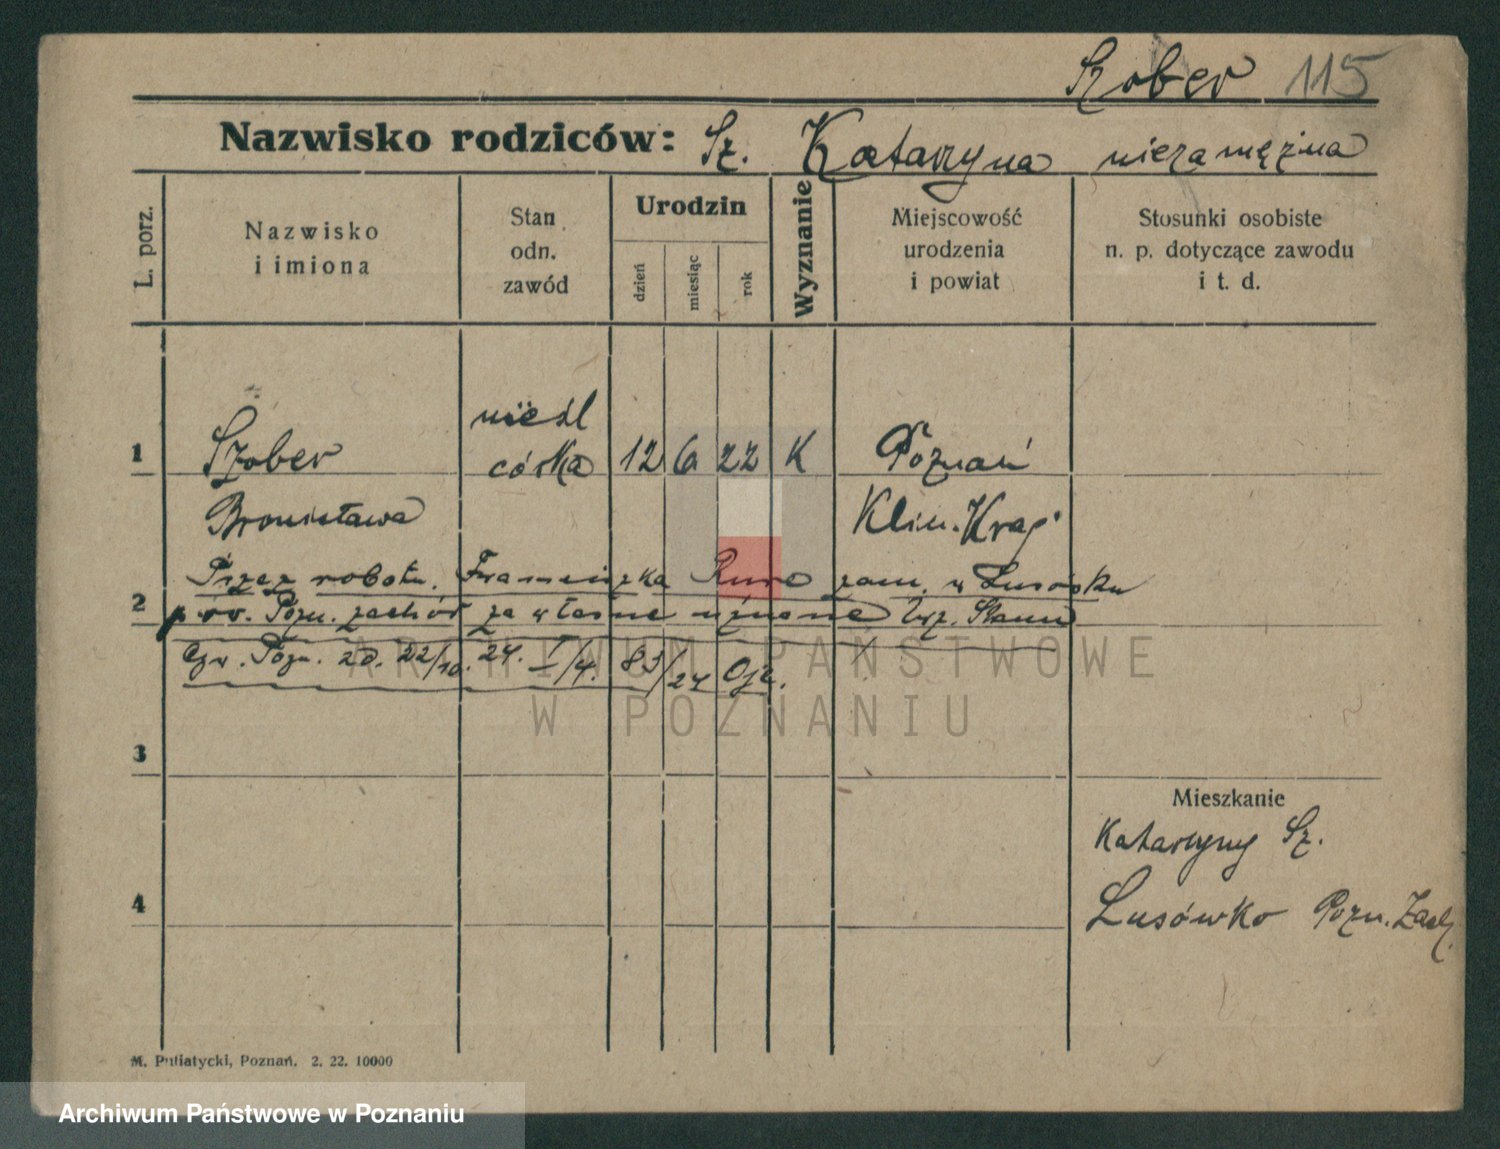 Szober 115
Nazwisko rodziców: Sz. Katarzyna niezamężna
L. porz.
Nazwisko
i imiona
Stan
odn.
zawód
Urodzin
dzień
miesiąc
rok
Wyznanie
Miejscowość
urodzenia
i powiat
Stosunki osobiste
n. p. dotyczące zawodu
i t. d.
1 Szober nieśl córka 12 6 22 K Poznań
Bronisława Klin. Kraj.
Przez robotn. Franciszka zam. w Lusówku
2 pow. Pozn. zachód za własne uznane Urz. Stanu
Czw. Pozn. 22/10. 24. I/4. 83/24
3
Mieszkanie
Katarzyny Sz.
4 Lusówko Pozn. Zach.
M. Putiatycki, Poznań. 2. 22. 10000
ARCHIWUM PAŃSTWOWE
W POZNANIU
Archiwum Państwowe w Poznaniu